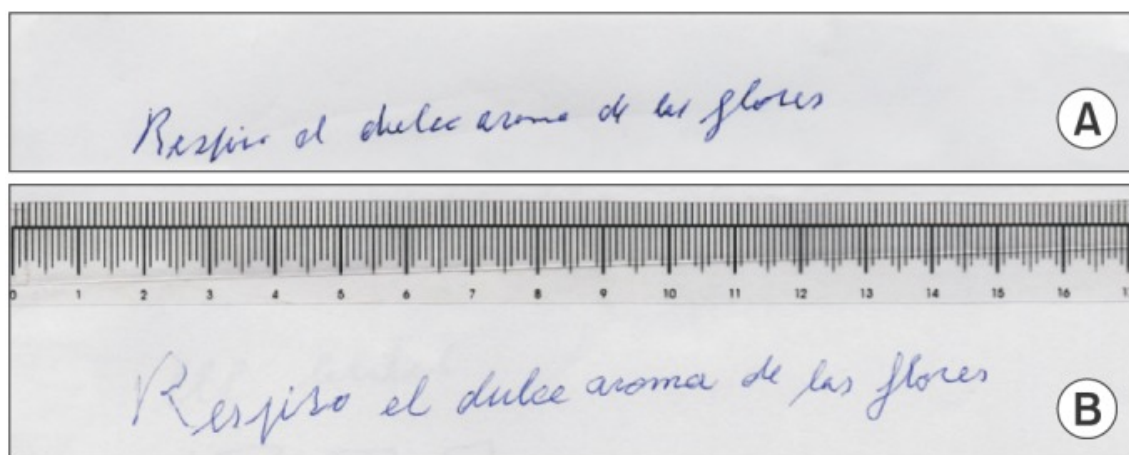 Respiro el dulce aroma de las flores
A
0 1 2 3 4 5 6 7 8 9 10 11 12 13 14 15 16 17
Respiro el dulce aroma de las flores
B